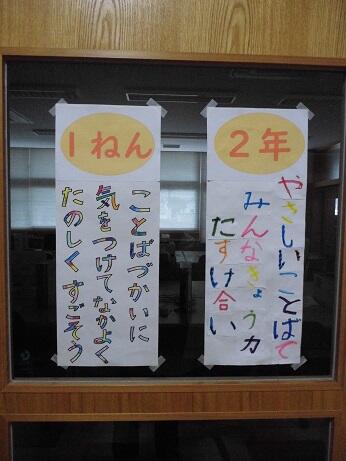 1ねん
ことばづかいに
気をつけてなかよく
たのしくすごそう
2年
やさしいことばで
みんなきょう力
たすけ合い